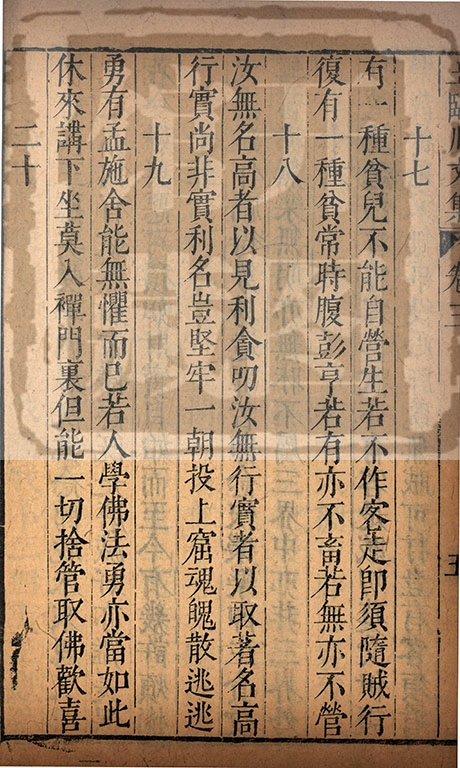 十七
有一種貧兒不能自營生若不作客走即須隨賊行
復有一種貧常時腹彭亨若有亦不畜若無亦不營
十八
汝無名高者以見利貪叨汝無行實者以取著名高
行實尚非實利名豈堅牢一朝投上窟魂魄散逃逃
十九
勇有孟施舍能無懼而已若人學佛法勇亦當如此
休來講下坐莫入禪門裏但能一切捨管取佛歡喜
二十